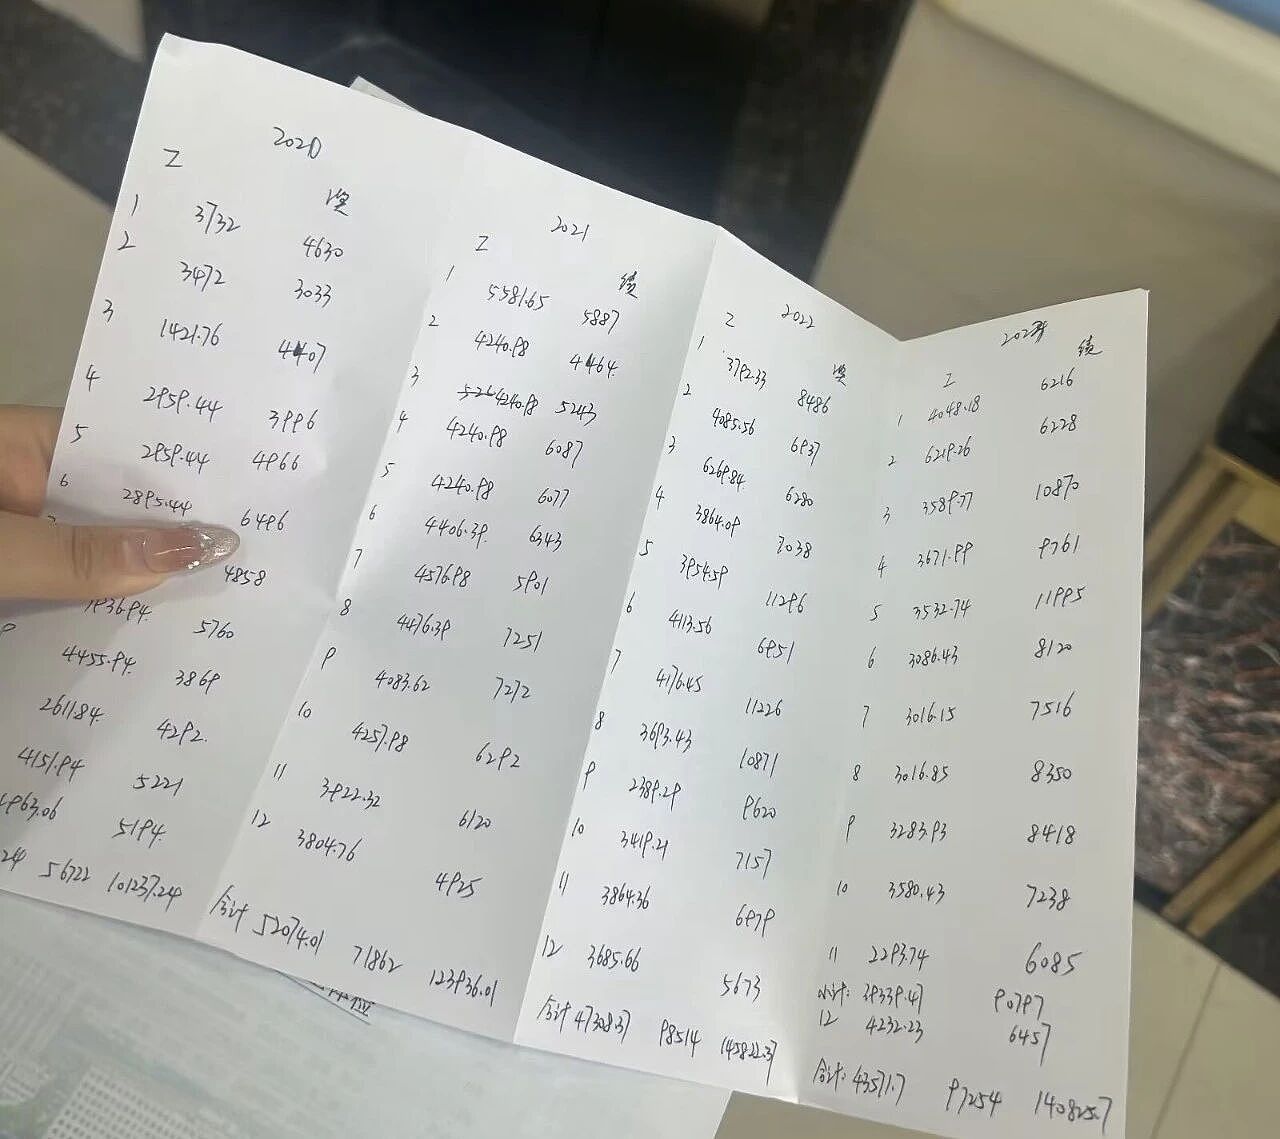 2020
Z 奖
1 3732 4630
2 3472 3033
3 1421.76 4407
4 2959.44 3996
5 2959.44 4966
6 2895.44 6496
4858
5760
9 4455.94 3869
2611.84 4292
4151.94 5221
963.06 5194
24 56722 101237.24
2021
Z 绩
1 5581.65 5887
2 4240.98 4464
3 4240.98 5243
4 4240.98 6087
5 4240.98 6077
6 4406.39 6343
7 4576.98 5901
8 4476.39 7251
9 4083.62 7272
10 4257.98 6292
11 3922.32 6120
12 3804.76 4925
合计 52074.01 71862 123936.01
2022
Z 奖
1 3792.33 8486
2 4085.56 6937
3 6269.84 6280
4 3864.09 7038
5 3954.59 11296
6 4113.56 6951
7 4176.45 11226
8 3693.43 10871
9 2389.29 9620
10 3419.21 7157
11 3864.36 6979
12 3685.66 5673
合计 47308.37 98514 145822.37
2023年
Z 绩
1 4048.18 6216
2 6219.26 6228
3 3589.77 10870
4 3671.99 9761
5 3532.74 11995
6 3086.43 8120
7 3016.15 7516
8 3016.85 8350
9 3283.93 8418
10 3580.43 7238
11 2293.74 6085
小计: 39339.47 90797
12 4232.23 6457
合计: 43571.7 97254 140825.7